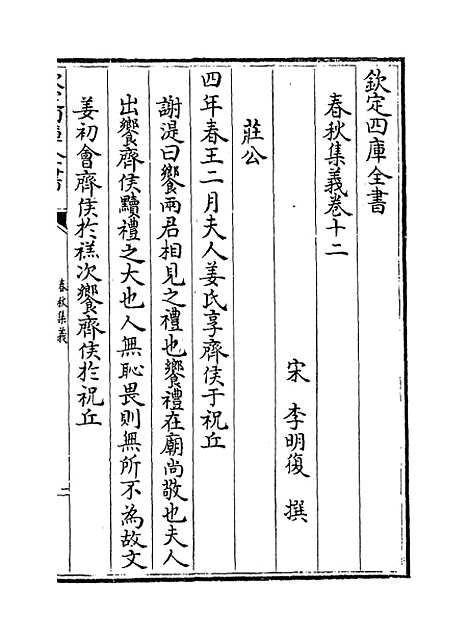 欽定四庫全書
春秋集義卷十二
宋 李明復 撰
莊公
四年春王二月夫人姜氏享齊侯于祝丘
謝湜曰饗兩君相見之禮也饗禮在廟尚敬也夫人
出饗齊侯黷禮之大也人無恥畏則無所不為故文
姜初會齊侯於禚次饗齊侯於祝丘
春秋集義